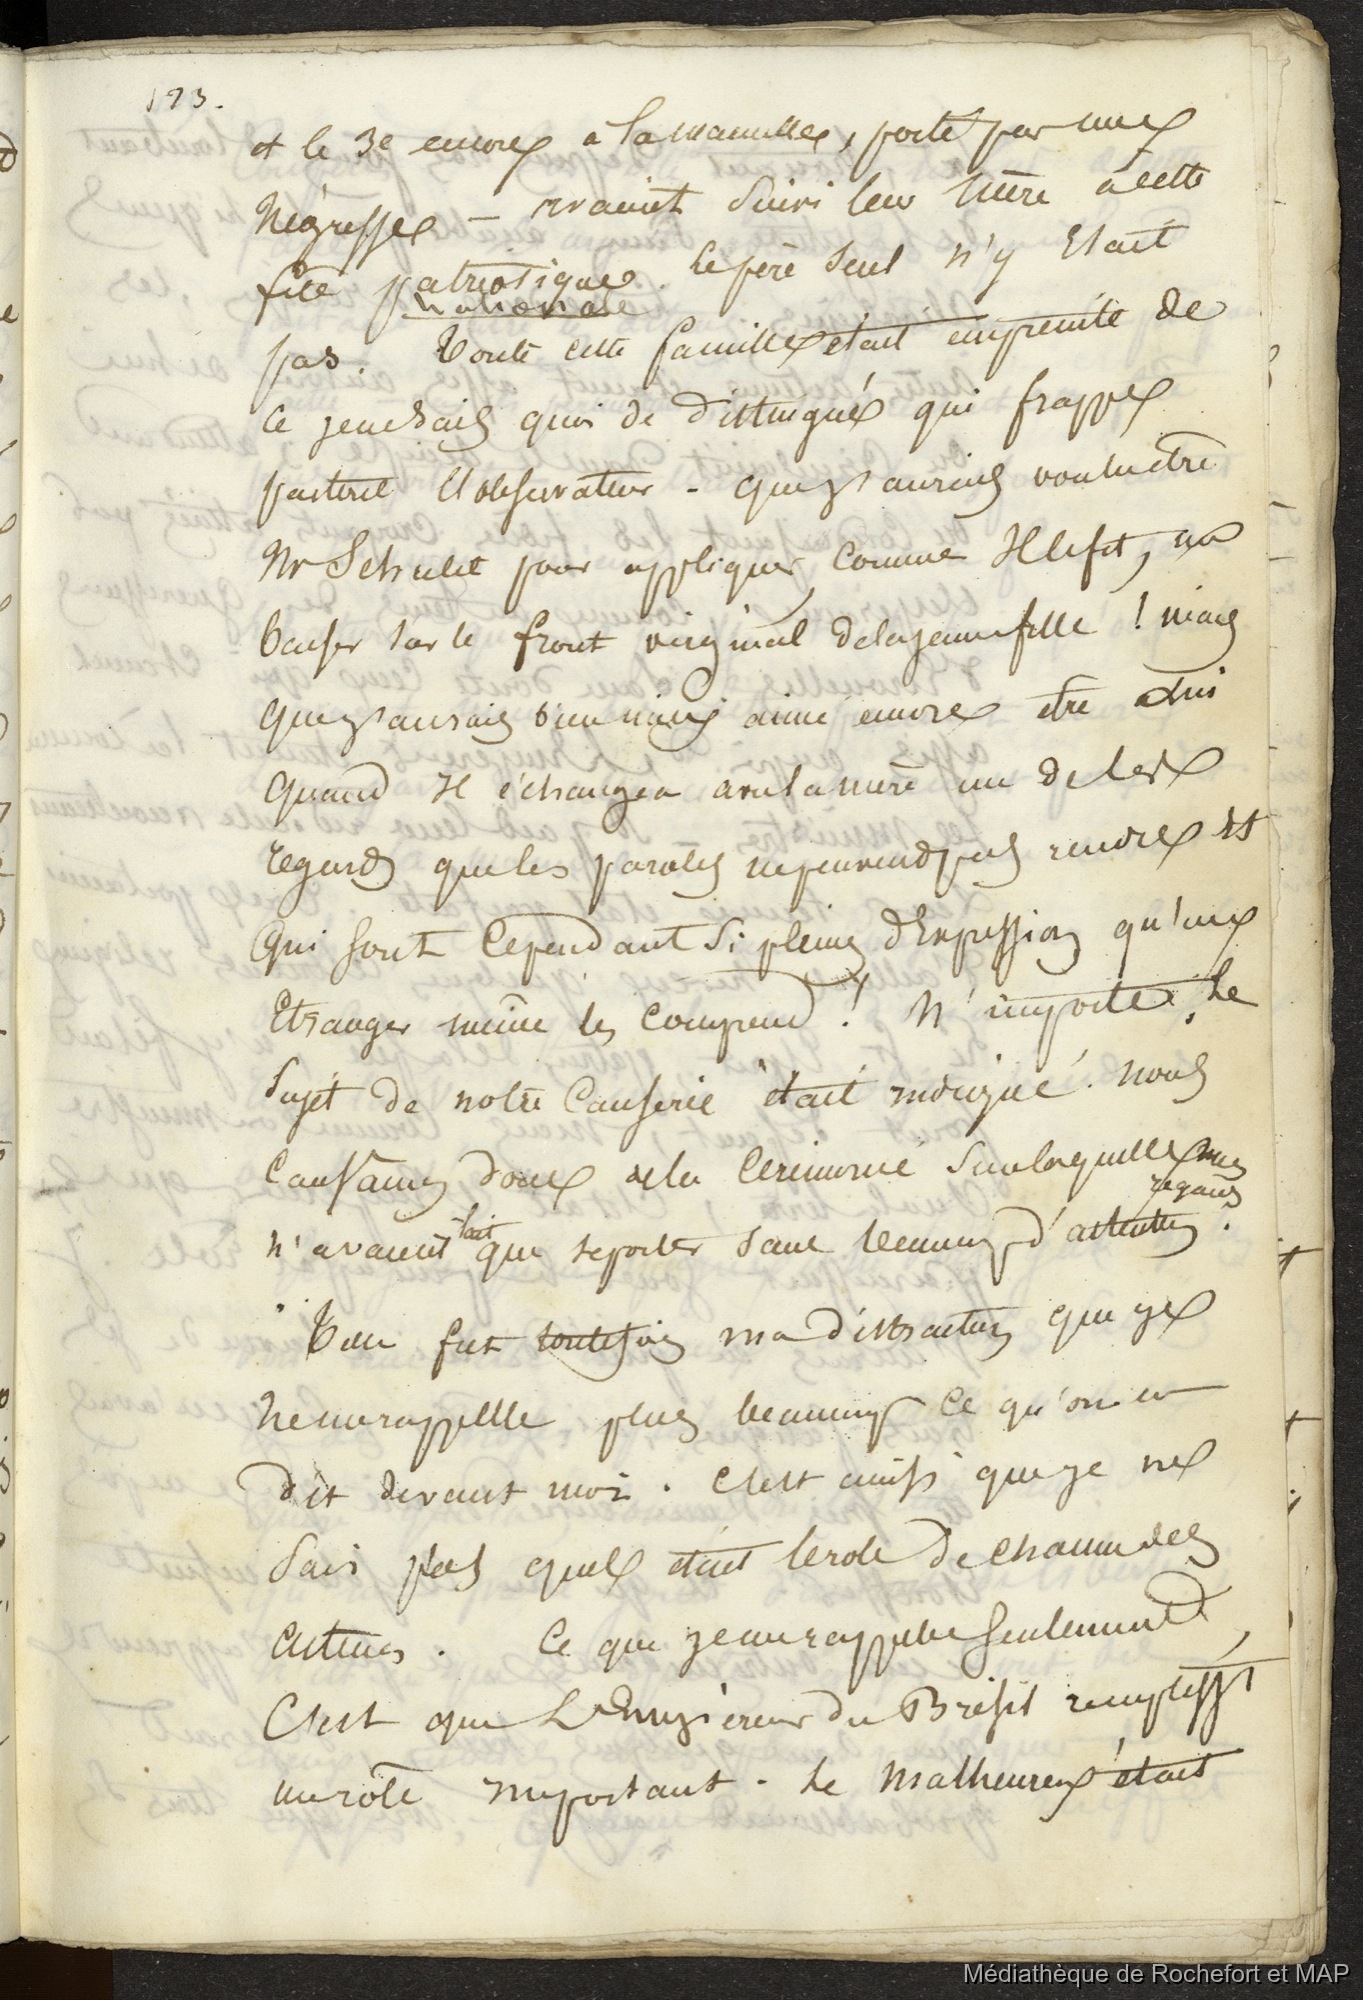 193.
et le 3e encore a la mamelle, porté par une
Négresse – avaient suivi leur mère a cette
fête patriotique. Le père seul n'y Etait
nationale
pas. Toute cette famille était empreinte de
ce jenesais quoi de distingué qui frappe
partout l'observateur - que j'aurais voulu être
Mr Schulet pour appliquer, comme Il le fit, un
baiser sur le front virginal de la jeune fille ! mais
que j'aurais bien mieux aimé encore être a lui
quand Il échangea avec la mère un de ces
regards que les paroles ne peuvent pas rendre Et
qui sont Cependant si pleins d'Expression qu'un
Etranger même les Comprend ! N'importe, Le
sujet de notre Causerie était indiqué. Nous
Causâmes donc de la Cérémonie sur laquelle mes
regards
n'avaient fait que se porter sans beaucoup d'attention.
Telle fut toutefois ma distraction que je
ne me rappelle plus beaucoup ce qu'on en
dit devant moi. C'est ainsi que je ne
sais pas quel était le role de chacun des
acteurs. Ce que je me rappelle seulement,
C'est que L'Empereur du Brésil remplissait
un rôle important - Le Malheureux était
Médiathèque de Rochefort et MAP